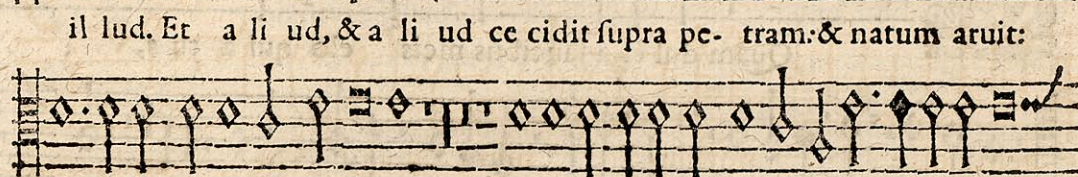 il lud. Et a li ud, & a li ud ce cidit ſupra pe- tram: & natum aruit: